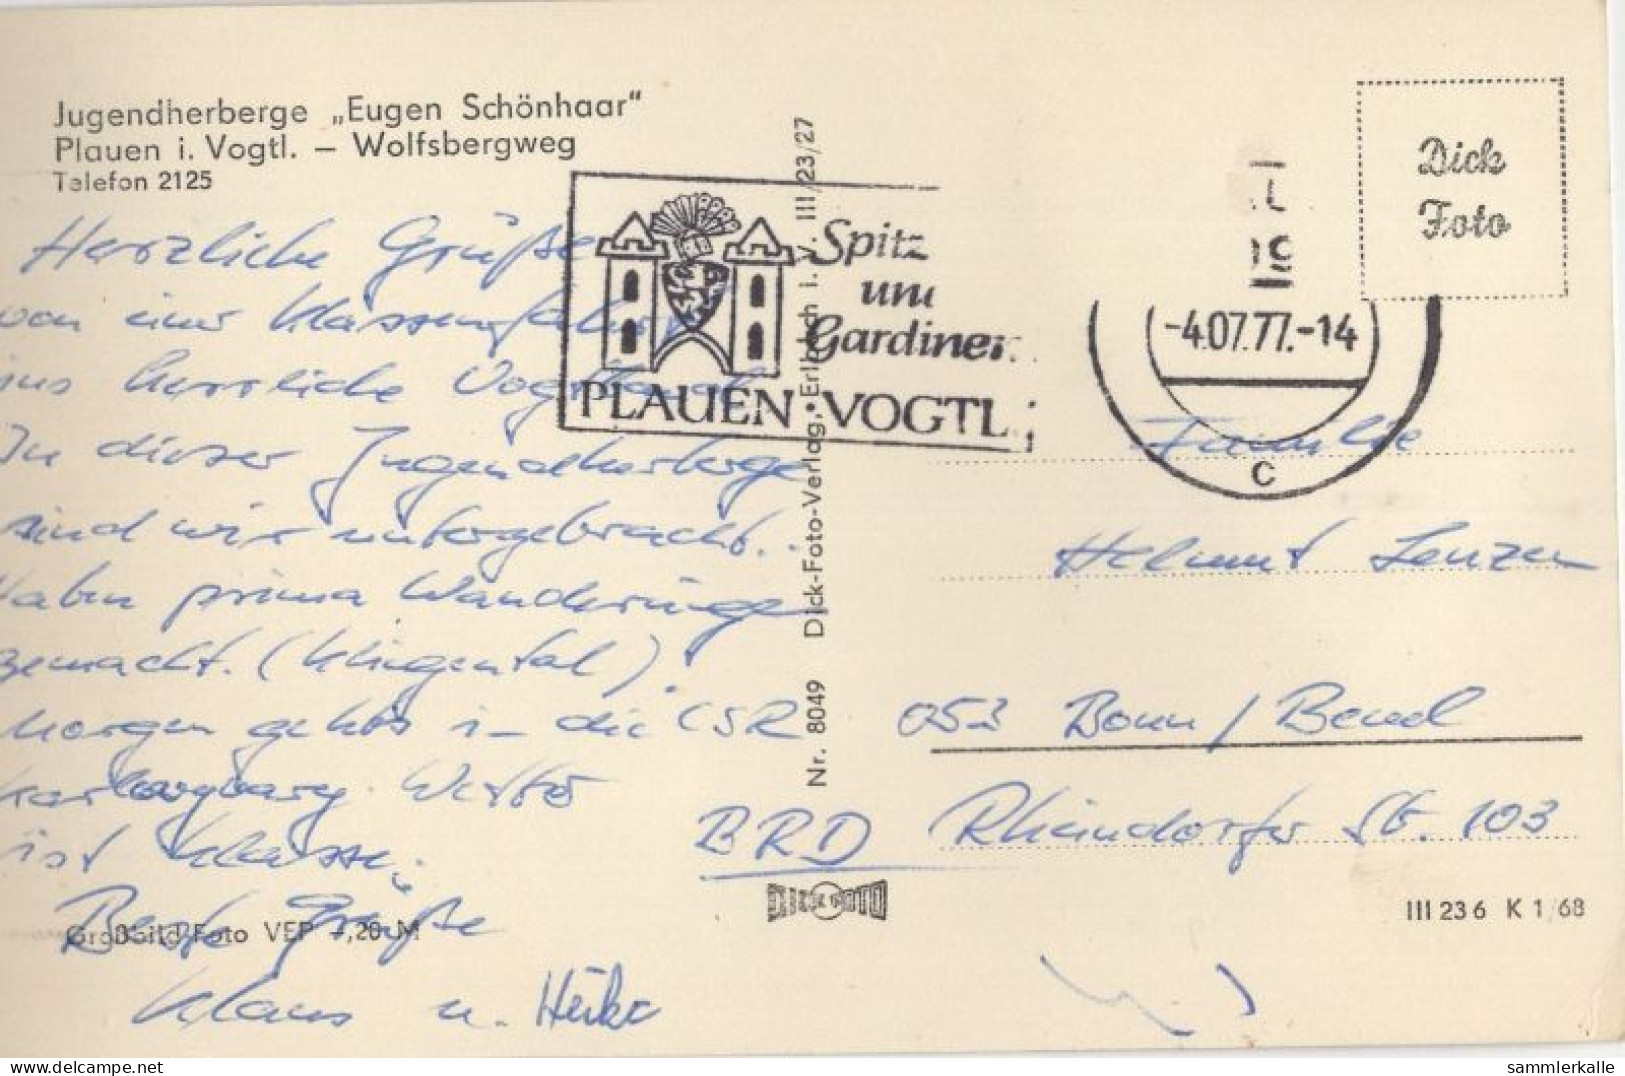 Jugendherberge „Eugen Schönhaar"
Plauen i. Vogtl. — Wolfsbergweg
Telefon 2125
Herzliche Grüße
von einer Klassenfahrt
ins herrliche Vogtland
In dieser Jugendherberge
sind wir untergebracht.
Haben prima Wanderungen
gemacht. (Klingental).
Morgen gehts in die ČSR
Wetter
ist Klasse.
Beste Grüße
Klaus u. Heike
Großbild-Foto VEP -,20 M
Spitz
un
Gardinen
PLAUEN VOGTL.
Nr. 8049 Dick-Foto-Verlag, Erlbach i. V. III/23/27
-4.07.77.-14
c
Dick
Foto
Familie
Helmut Lenzen
053 Bonn/Beuel
BRD Rheindorfer St. 103
DICK FOTO
III 23 6 K 1/68
sammlerkalle